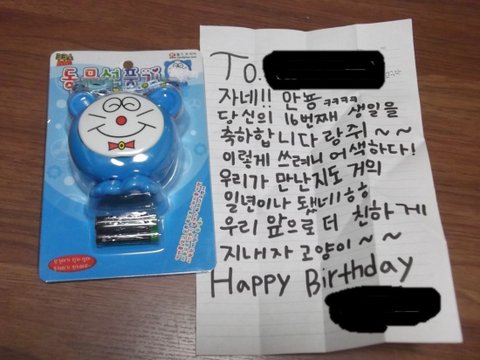 동물선풍기
To.
자네!! 안뇽 ㅋㅋㅋㅋ
당신의 16번째 생일을
축하합니다 랑쥐 ~ ~
이렇게 쓰려니 어색하다!
우리가 만난지도 거의
일년이나 됐네!ㅎㅎ
우리 앞으로 더 친하게
지내자 고양이 ~ ~
Happy Birthday